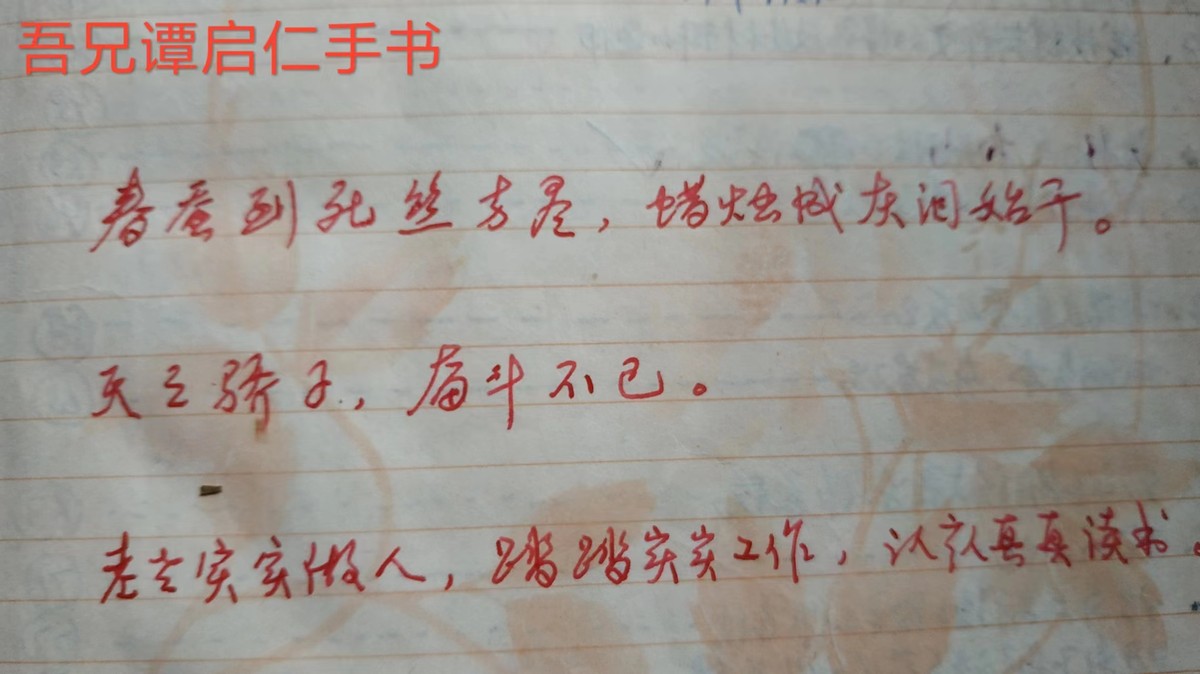 吾兄谭启仁手书
春蚕到死丝方尽，蜡烛成灰泪始干。
天之骄子，奋斗不已。
老老实实做人，踏踏实实工作，认认真真读书。